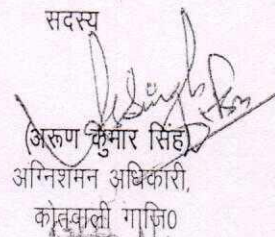 सदस्य
(अरूण कुमार सिंह)
अग्निशमन अधिकारी,
कोतवाली गाज़ि0